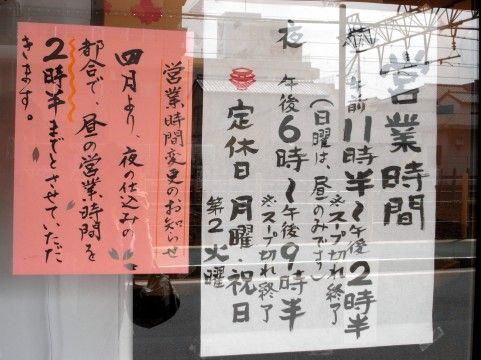 営業時間
昼 午前11時半〜午後2時半
※スープ切れ終了
(日曜は、昼のみです)
夜 午後6時〜午後9時半
※スープ切れ終了
定休日 月曜・祝日
第2火曜
営業時間変更のお知らせ
四月より、夜の仕込みの
都合で、昼の営業時間を
2時半までとさせていただ
きます。